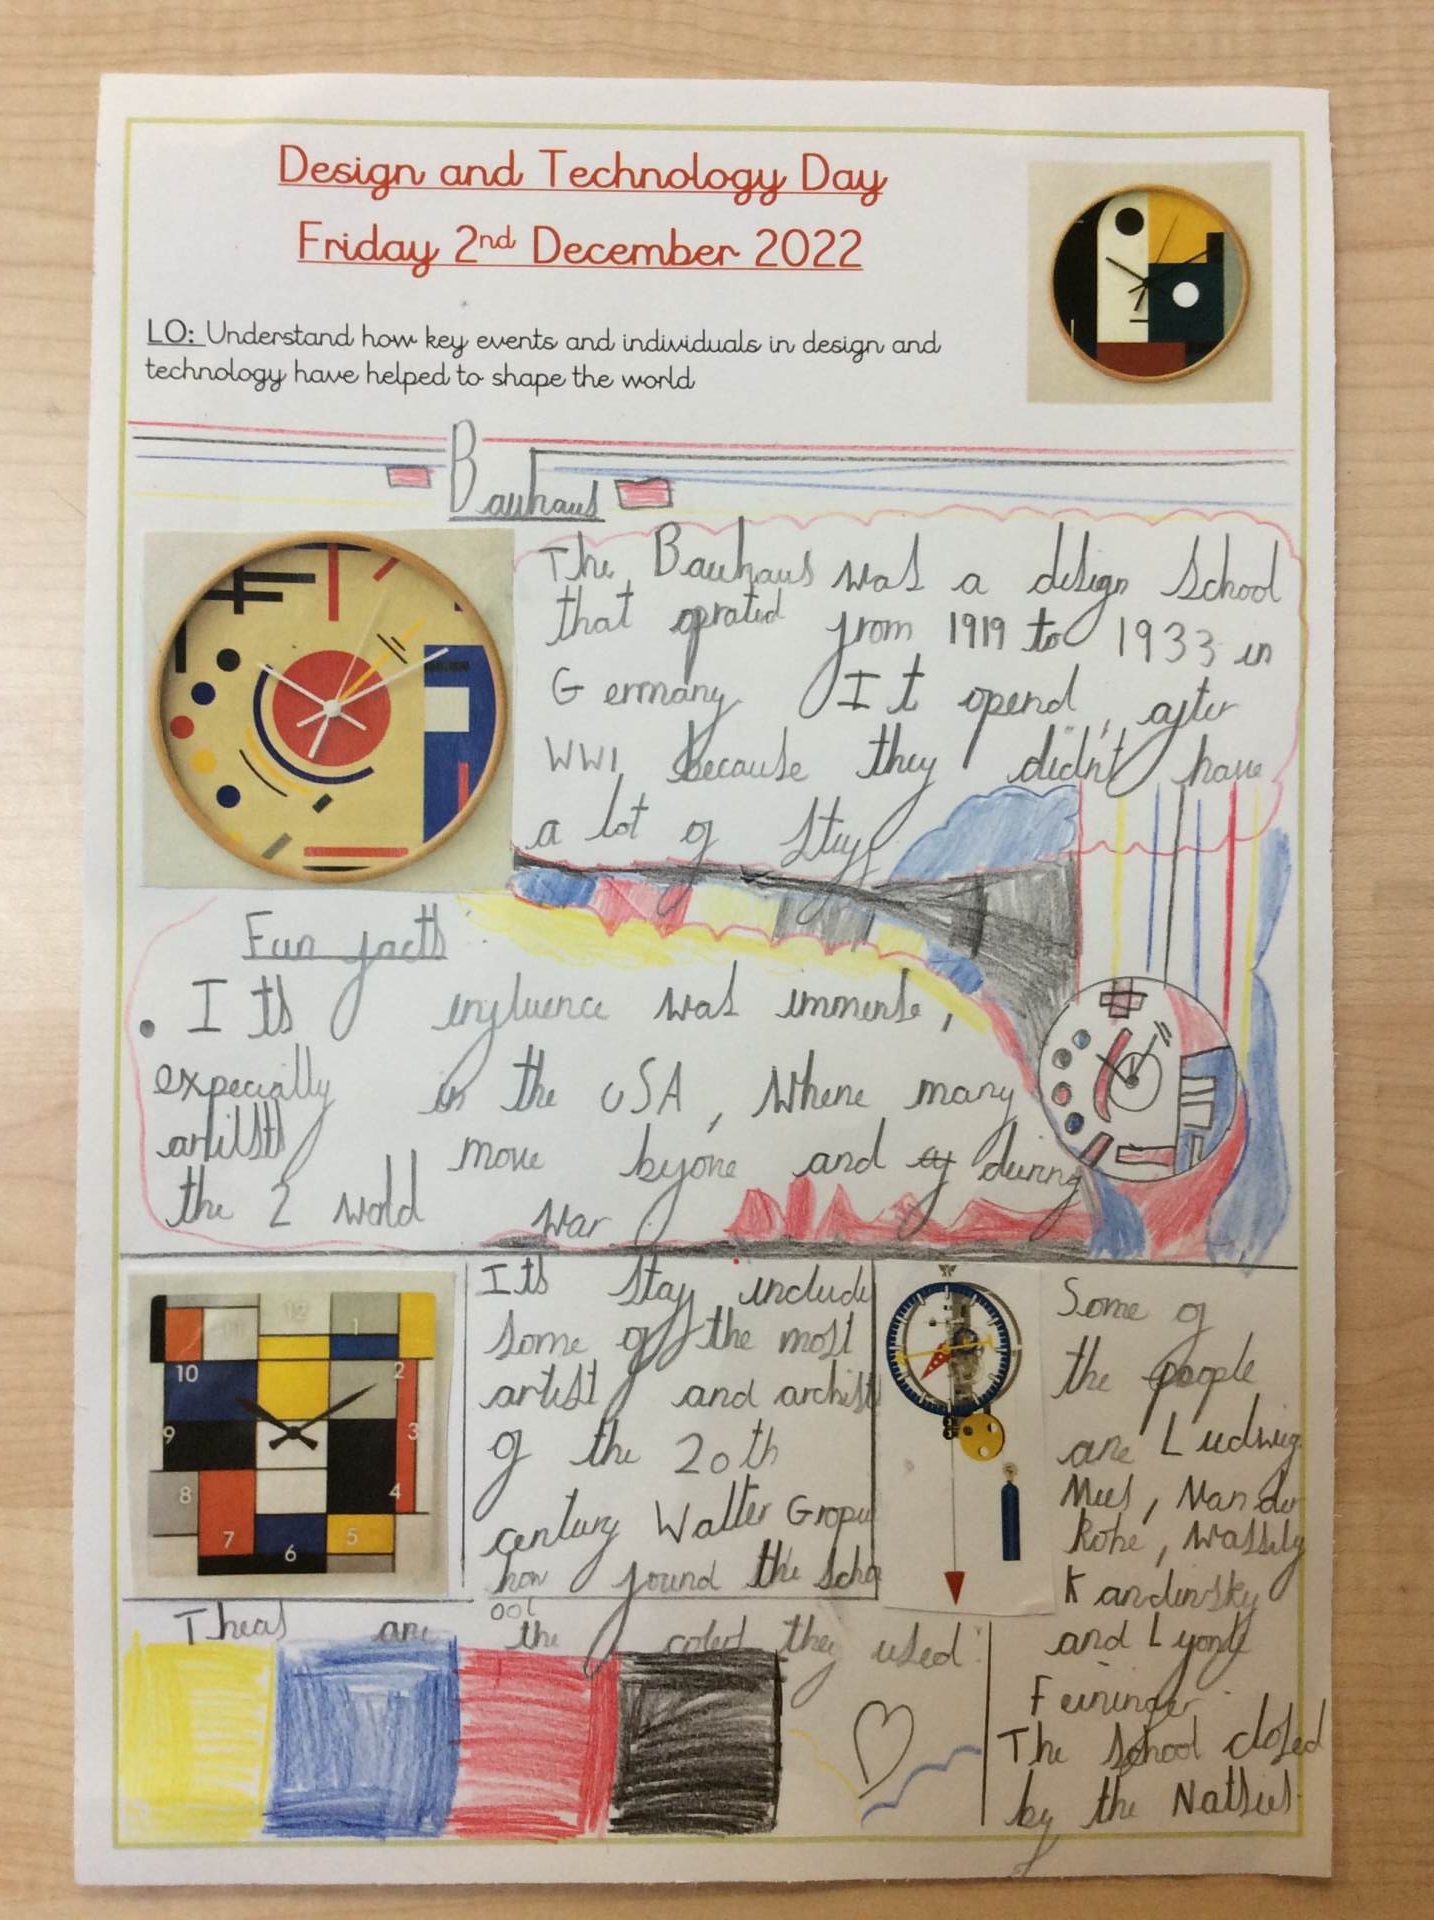 Design and Technology Day
Friday 2nd December 2022
LO: Understand how key events and individuals in design and
technology have helped to shape the world
Bauhaus
The Bauhaus was a design school
that oprated from 1919 to 1933 in
Germany It opend, after
WW1, because they didn't have
a lot of
Fun facts
• Its influence was immense,
expecially in the USA, Where many
move and during
the 2 wold war
Its include
some of the most
artist and
of the 20th
century Walter
how found the scho
ool
10
1
2
9
3
8
4
7
6
5
Some of
the people
are Ludwig
Mies, Van der
Rohe, Wassily
Kandinsky
and
Feininger
The school closed
by the
Theas are the they used: